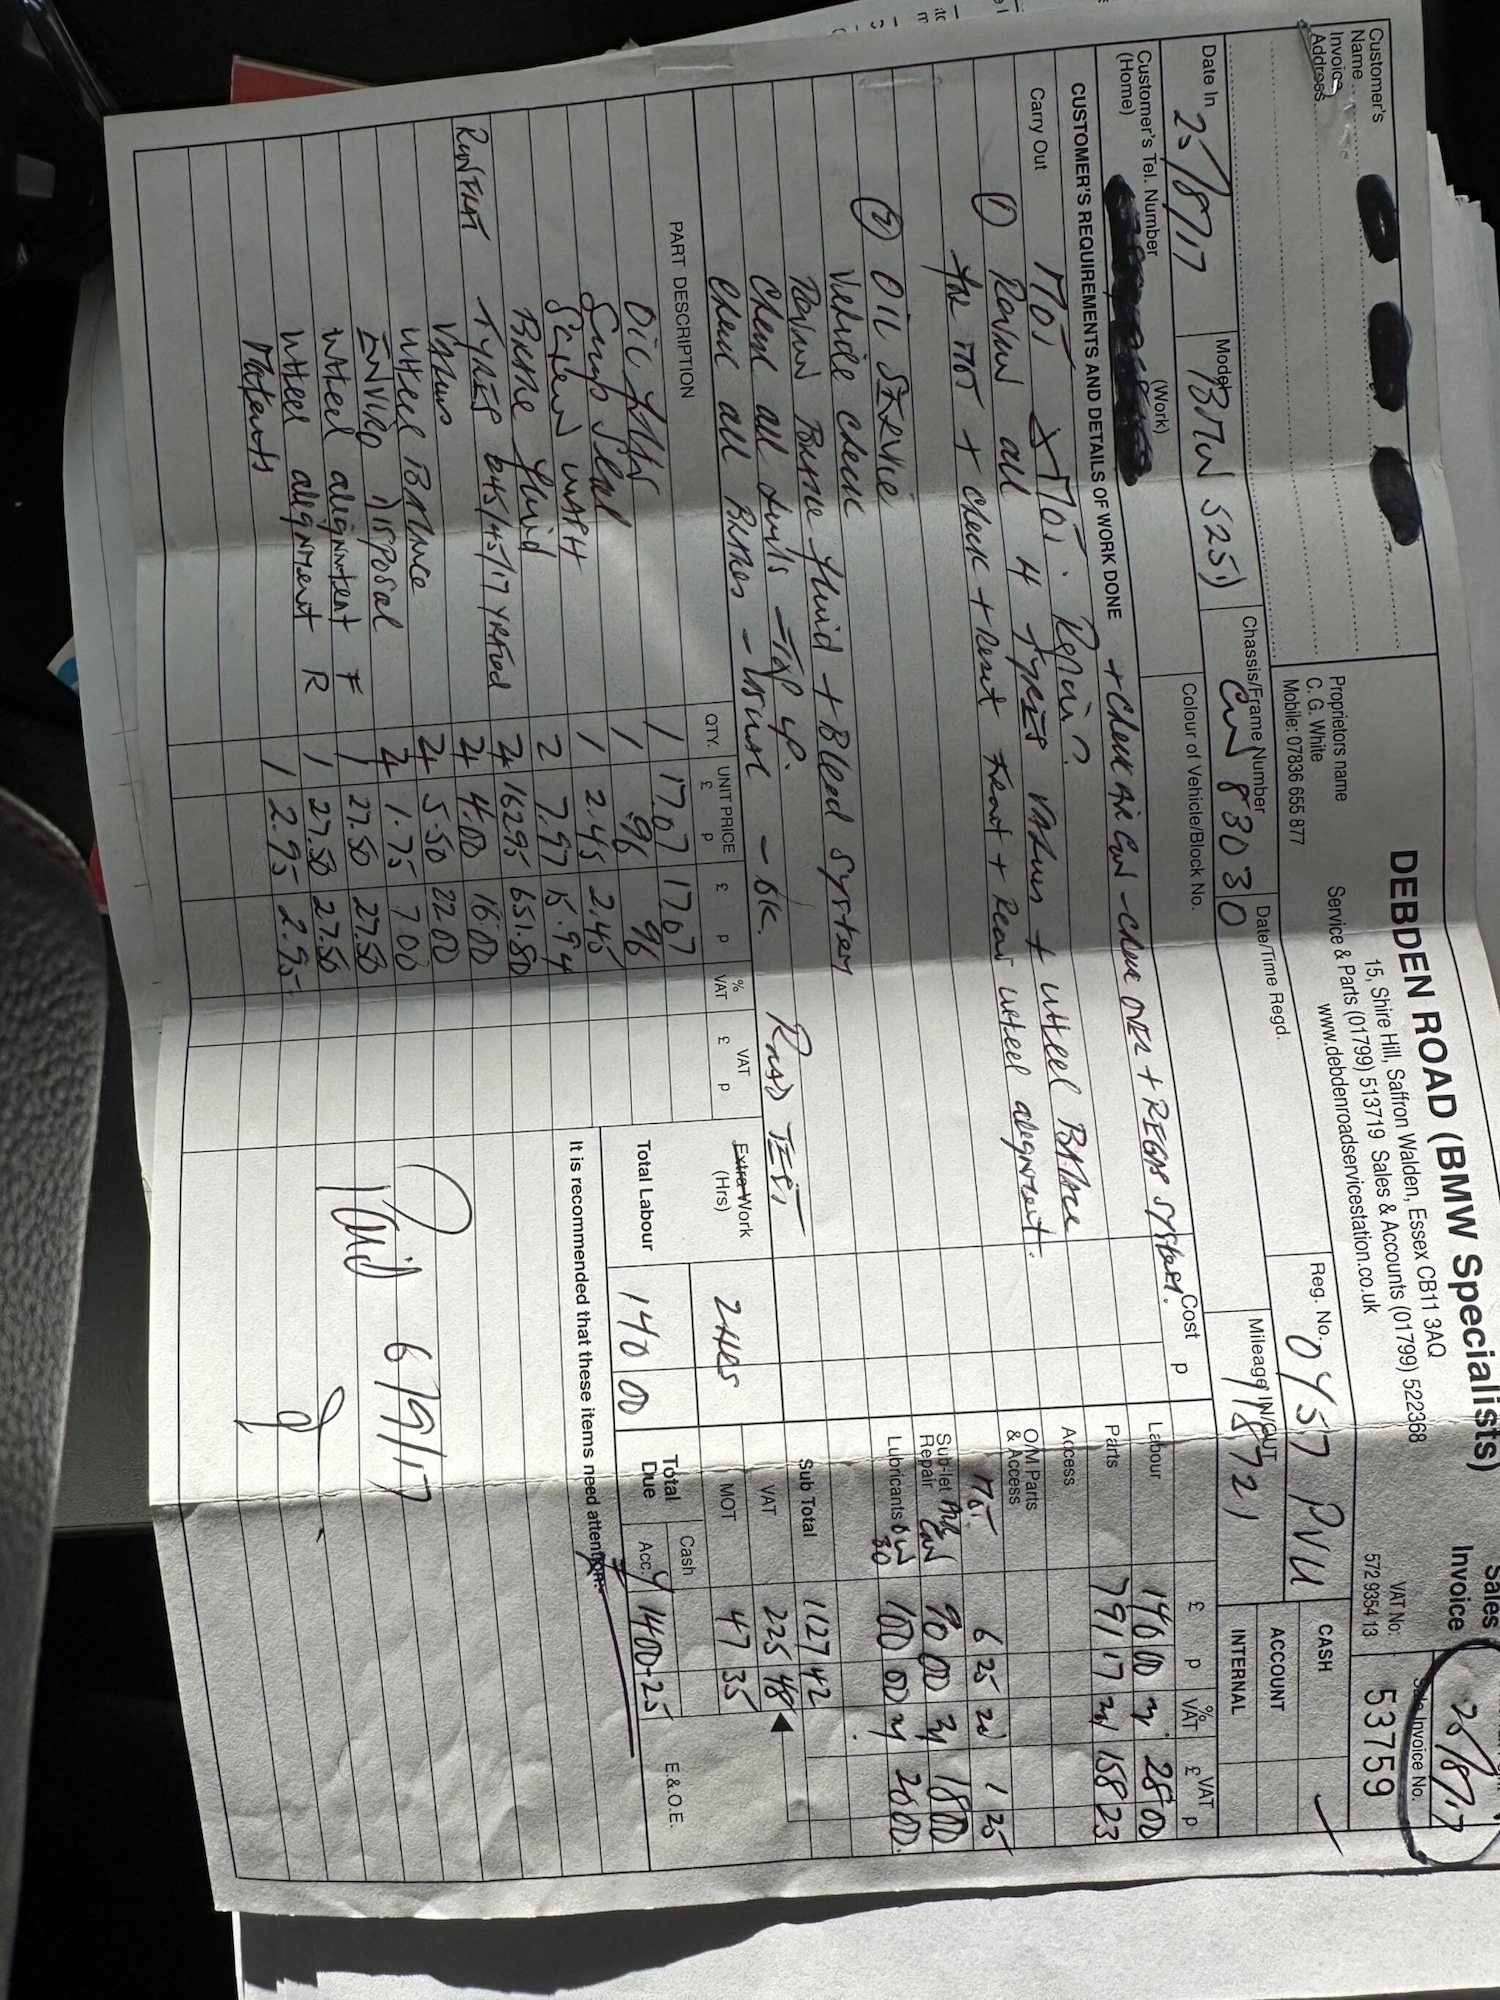 DEBDEN ROAD (BMW Specialists)
15, Shire Hill, Saffron Walden, Essex CB11 3AQ
Service & Parts (01799) 513719 Sales & Accounts (01799) 522368
www.debdenroadservicestation.co.uk
Sales
Invoice
25/8/17
VAT No:
572 9354 13
Sale Invoice No.
53759
Customer's
Name
Invoice
Address
Proprietors name
C. G. White
Mobile: 07836 655 877
Reg. No. OY57 PVU
CASH
ACCOUNT
INTERNAL
Date In 25/8/17
Model BMW 525D
Chassis/Frame Number CW 83030
Date/Time Regd.
Mileage IN/OUT 98721
Customer's Tel. Number
(Home)
(Work)
Colour of Vehicle/Block No.
CUSTOMER'S REQUIREMENTS AND DETAILS OF WORK DONE + Check Air Con - Check OVER + REGAS System.
Cost
p
Carry Out MOT & MOT. Repair?
① Renew all 4 tyres Valves + wheel BALANCE
for MOT + check + Reset Front + Rear wheel alignment.
② OIL SERVICE
Vehicle check
Renew Brake fluid + Bleed system
Check all levels - TOP UP.
Check all Brakes - Visual - OK.
ROAD TEST
£ p % VAT VAT £ p
Labour 140 00 20 28 00
Parts 791 17 20 158 23
Access
O/M Parts & Access
MOT. 6 25 20 1 25
Sub-let Repair Air Con 90 00 20 18 00
Lubricants 5W 30 100 00 20 20 00
Sub Total 1127 42
VAT 225 48
MOT 47 35
Total Due Cash Acc. 1400-25
E.&.O.E.
PART DESCRIPTION QTY. UNIT PRICE £ p £ p % VAT VAT £ p
Oil filter 1 17.07 17 07
Sump Seal 1 96 96
Screen wash 1 2.45 2.45
Brake fluid 2 7.97 15.94
RUNFLAT TYRES 245/45/17 Y RATED 4 162.95 651.80
Valves 4 4.00 16.00
Wheel BALANCE 4 5.50 22.00
ENVIRO Disposal 4 1.75 7 00
Wheel alignment F 1 27.50 27.50
Wheel alignment R 1 27.50 27.50
Materials 1 2.95 2.95
Extra Work
(Hrs) 2 HRS
Total Labour 140 00
It is recommended that these items need attention:
Paid 6/9/17